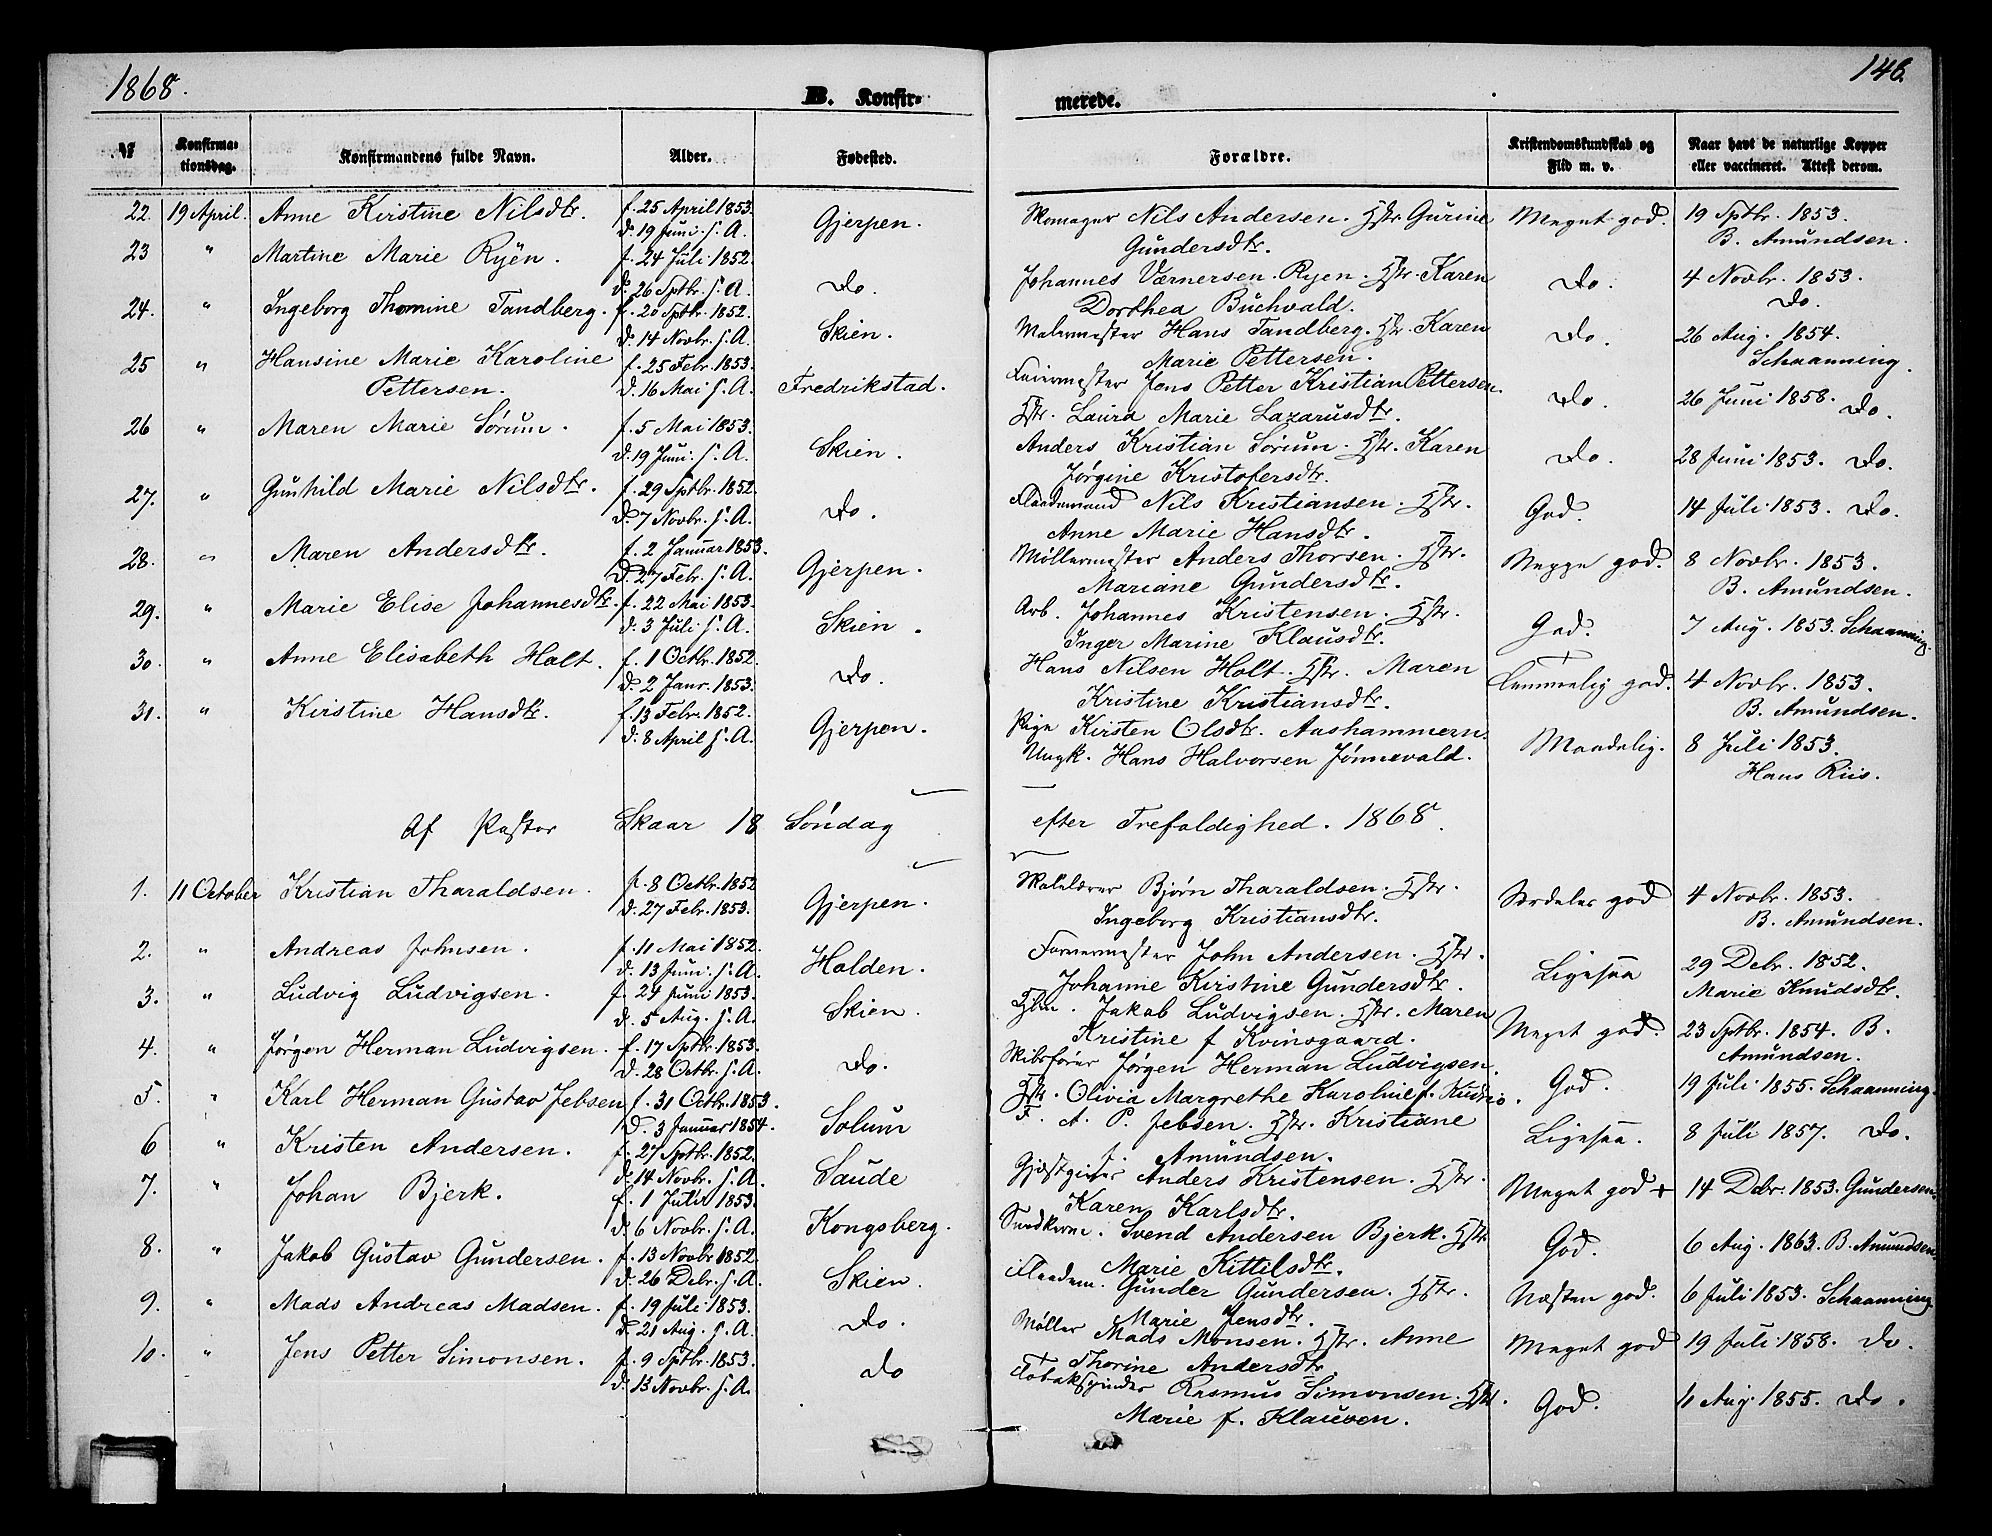 1868.
146.
B. Konfir-
merede.
№
Konfirma-
tionsdag.
Konfirmandens fulde Navn.
Alder.
Fødested.
Forældre.
Kristendomskundskab og
Flid m. v.
Naar havt de naturlige Kopper
eller vaccineret. Attest derom.
22. 19 April. Anne Kirstine Nilsdtr. f. 25 April 1853. Gjerpen. Skomager Nils Andersen. Hstr. Gurine Meget god. 19 Sptbr. 1853.
d. 19 Juni. s. A. Gundersdtr. B. Amundsen.
23 " Martine Marie Ryen. f. 24 Juli 1852. Do. Johannes Værnersen Ryen. Hstr. Karen Do. 4 Novbr. 1853.
d. 26 Sptbr. s. A. Dorthea Buchvald. Do.
24. " Ingeborg Thomine Tandberg. f. 20 Sptbr. 1852. Skien. Malermester Hans Tandberg. Hstr. Karen Do. 26 Aug. 1854.
d. 14 Novbr. s. A. Marie Pettersen. Schaanning.
25 " Hansine Marie Karoline f. 25 Febr. 1853. Fredrikstad. Feiermester Jens Petter Kristian Pettersen. Do. 26 Juni 1858. Do.
Pettersen. d. 16 Mai s. A. Hstr. Laura Marie Lazarusdtr.
26 " Maren Marie Sørum. f. 5 Mai 1853. Skien. Anders Kristian Sørum. Hstr. Karen Do. 28 Juni 1853. Do.
d. 19 Juni. s. A. Jørgine Kristofersdtr.
27. " Gunhild Marie Nilsdtr. f. 29 Sptbr. 1852. Do. Flaademand Nils Kristiansen. Hstr. God. 14 Juli 1853. Do.
d. 7 Novbr. s. A. Anne Marie Hansdtr.
28. " Maren Andersdtr. f. 2 Januar 1853. Gjerpen. Møllermester Anders Thorsen. Hstr. god. 8 Novbr. 1853.
d. 27 Febr. s. A. Mariane Gundersdtr. B. Amundsen.
29. " Marie Elise Johannesdtr. f. 22 Mai 1853. Skien. Arb. Johannes Kristensen. Hstr. God. 7 Aug. 1853. Schaanning.
d. 3 Juli s. A. Inger Marine Klausdtr.
30. " Anne Elisabeth Holt. f. 1 Octbr. 1852. Do. Hans Nilsen Holt. Hstr. Maren Temmelig god. 4 Novbr. 1853.
d. 2 Janr. 1853. Kristine Kristiansdtr. B. Amundsen.
31. " Kirstine Hansdtr. f. 13 Febr. 1852. Gjerpen. Pige Kirsten Olsdtr. Aashammern. Maadelig. 8 Juli 1853.
d. 8 April s. A. Ungk. Hans Halvorsen Jønnevald. Hans Riis.
Af Pastor Skaar 18 Søndag efter Trefoldighed. 1868.
1. 11 October Kristian Tharaldsen. f. 8 Octbr. 1852 Gjerpen. Skolelærer Bjørn Tharaldsen. Hstr. Særdeles god 4 Novbr. 1853.
d. 27 Febr. 1853. Ingeborg Kristiansdtr. B. Amundsen.
2. " Andreas Johnsen. f. 11 Mai 1852. Holden. Formermester John Andersen. Hstr. Ligesaa 29 Debr. 1852.
d. 13 Juni. s. A. Johanne Kirstine Gundersdtr. Marie Knudsdtr.
3. " Ludvig Ludvigsen. f. 24 Juni 1853. Skien. Jakob Ludvigsen. Hstr. Maren Meget god. 23 Sptbr. 1854. B.
d. 5 Aug. s. A. Kristine f Kvinsgaard. Amundsen.
4. " Jørgen Herman Ludvigsen. f. 17 Sptbr. 1853. Do. Skibsfører Jørgen Herman Ludvigsen. God. 19 Juli 1855. Schaanning.
d. 28 Octbr. s. A. Hstr. Olivia Margrethe Karoline f.
5. " Karl Herman Gustav Jebsen f. 31 Octbr. 1853. Solum F. A. P. Jebsen. Hstr. Kristiane Ligesaa. 8 Juli 1857. Do.
d. 3 Januar 1854. f. Amundsen.
6 " Kristen Andersen. f. 27 Sptbr. 1852. Saude Gjæstgiver Anders Kristensen. Hstr. Meget god + 14 Debr. 1853. Gundersen.
d. 14 Novbr. s. A. Karen Karlsdtr.
7. " Johan Bjerk. f. 1 Juli 1853. Kongsberg. Svend Andersen Bjerk. Hstr. God. 6 Aug. 1863. B. Amundsen.
d. 6 Novbr. s. A. Marie Kittilsdtr.
8. " Jakob Gustav Gundersen. f. 13 Novbr 1852. Skien. Flaadem. Gunder Gundersen. Hstr. Næsten god. 6 Juli 1853. Schaanning
d. 26 Debr. s. A. Marie Jensdtr.
9. " Mads Andreas Madsen. f. 19 Juli 1853. Do. Møller Mads Monsen. Hstr. Anne Meget god 19 Juli 1858. Do.
d. 21 Aug. s. A. Thorine Andersdtr.
10. " Jens Petter Simonsen. f. 9 Sptbr. 1853. Do Tobakspinder Rasmus Simonsen. Hstr. God. 11 Aug 1855. Do.
d. 13 Novbr. s. A. Marie f. Klausen.